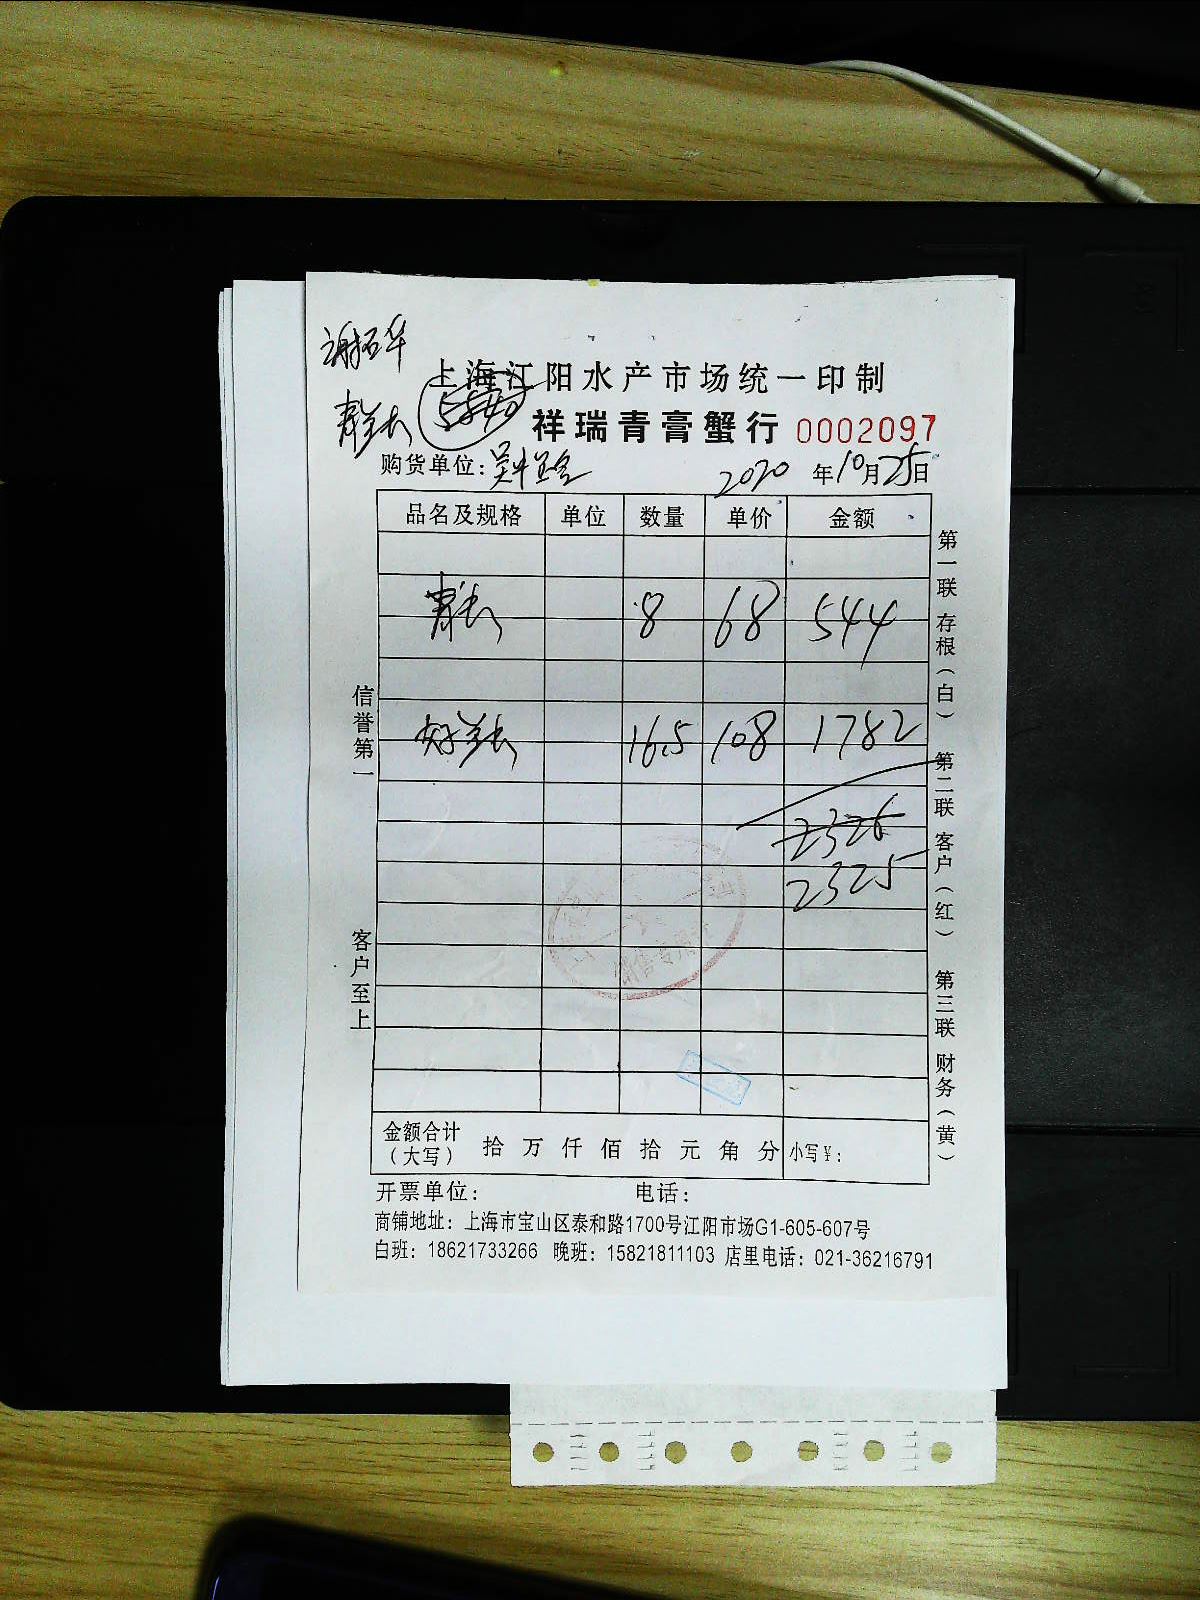 上海江阳水产市场统一印制
祥瑞青膏蟹行 0002097
购货单位: 2020 年10月25日
品名及规格 单位 数量 单价 金额
8 68 544
16.5 108 1782
2326
2325
金额合计(大写) 拾 万 仟 佰 拾 元 角 分 小写¥:
开票单位: 电话:
商铺地址: 上海市宝山区泰和路1700号江阳市场G1-605-607号
白班: 18621733266 晚班: 15821811103 店里电话: 021-36216791
信誉第一 客户至上
第一联 存根(白) 第二联 客户(红) 第三联 财务(黄)